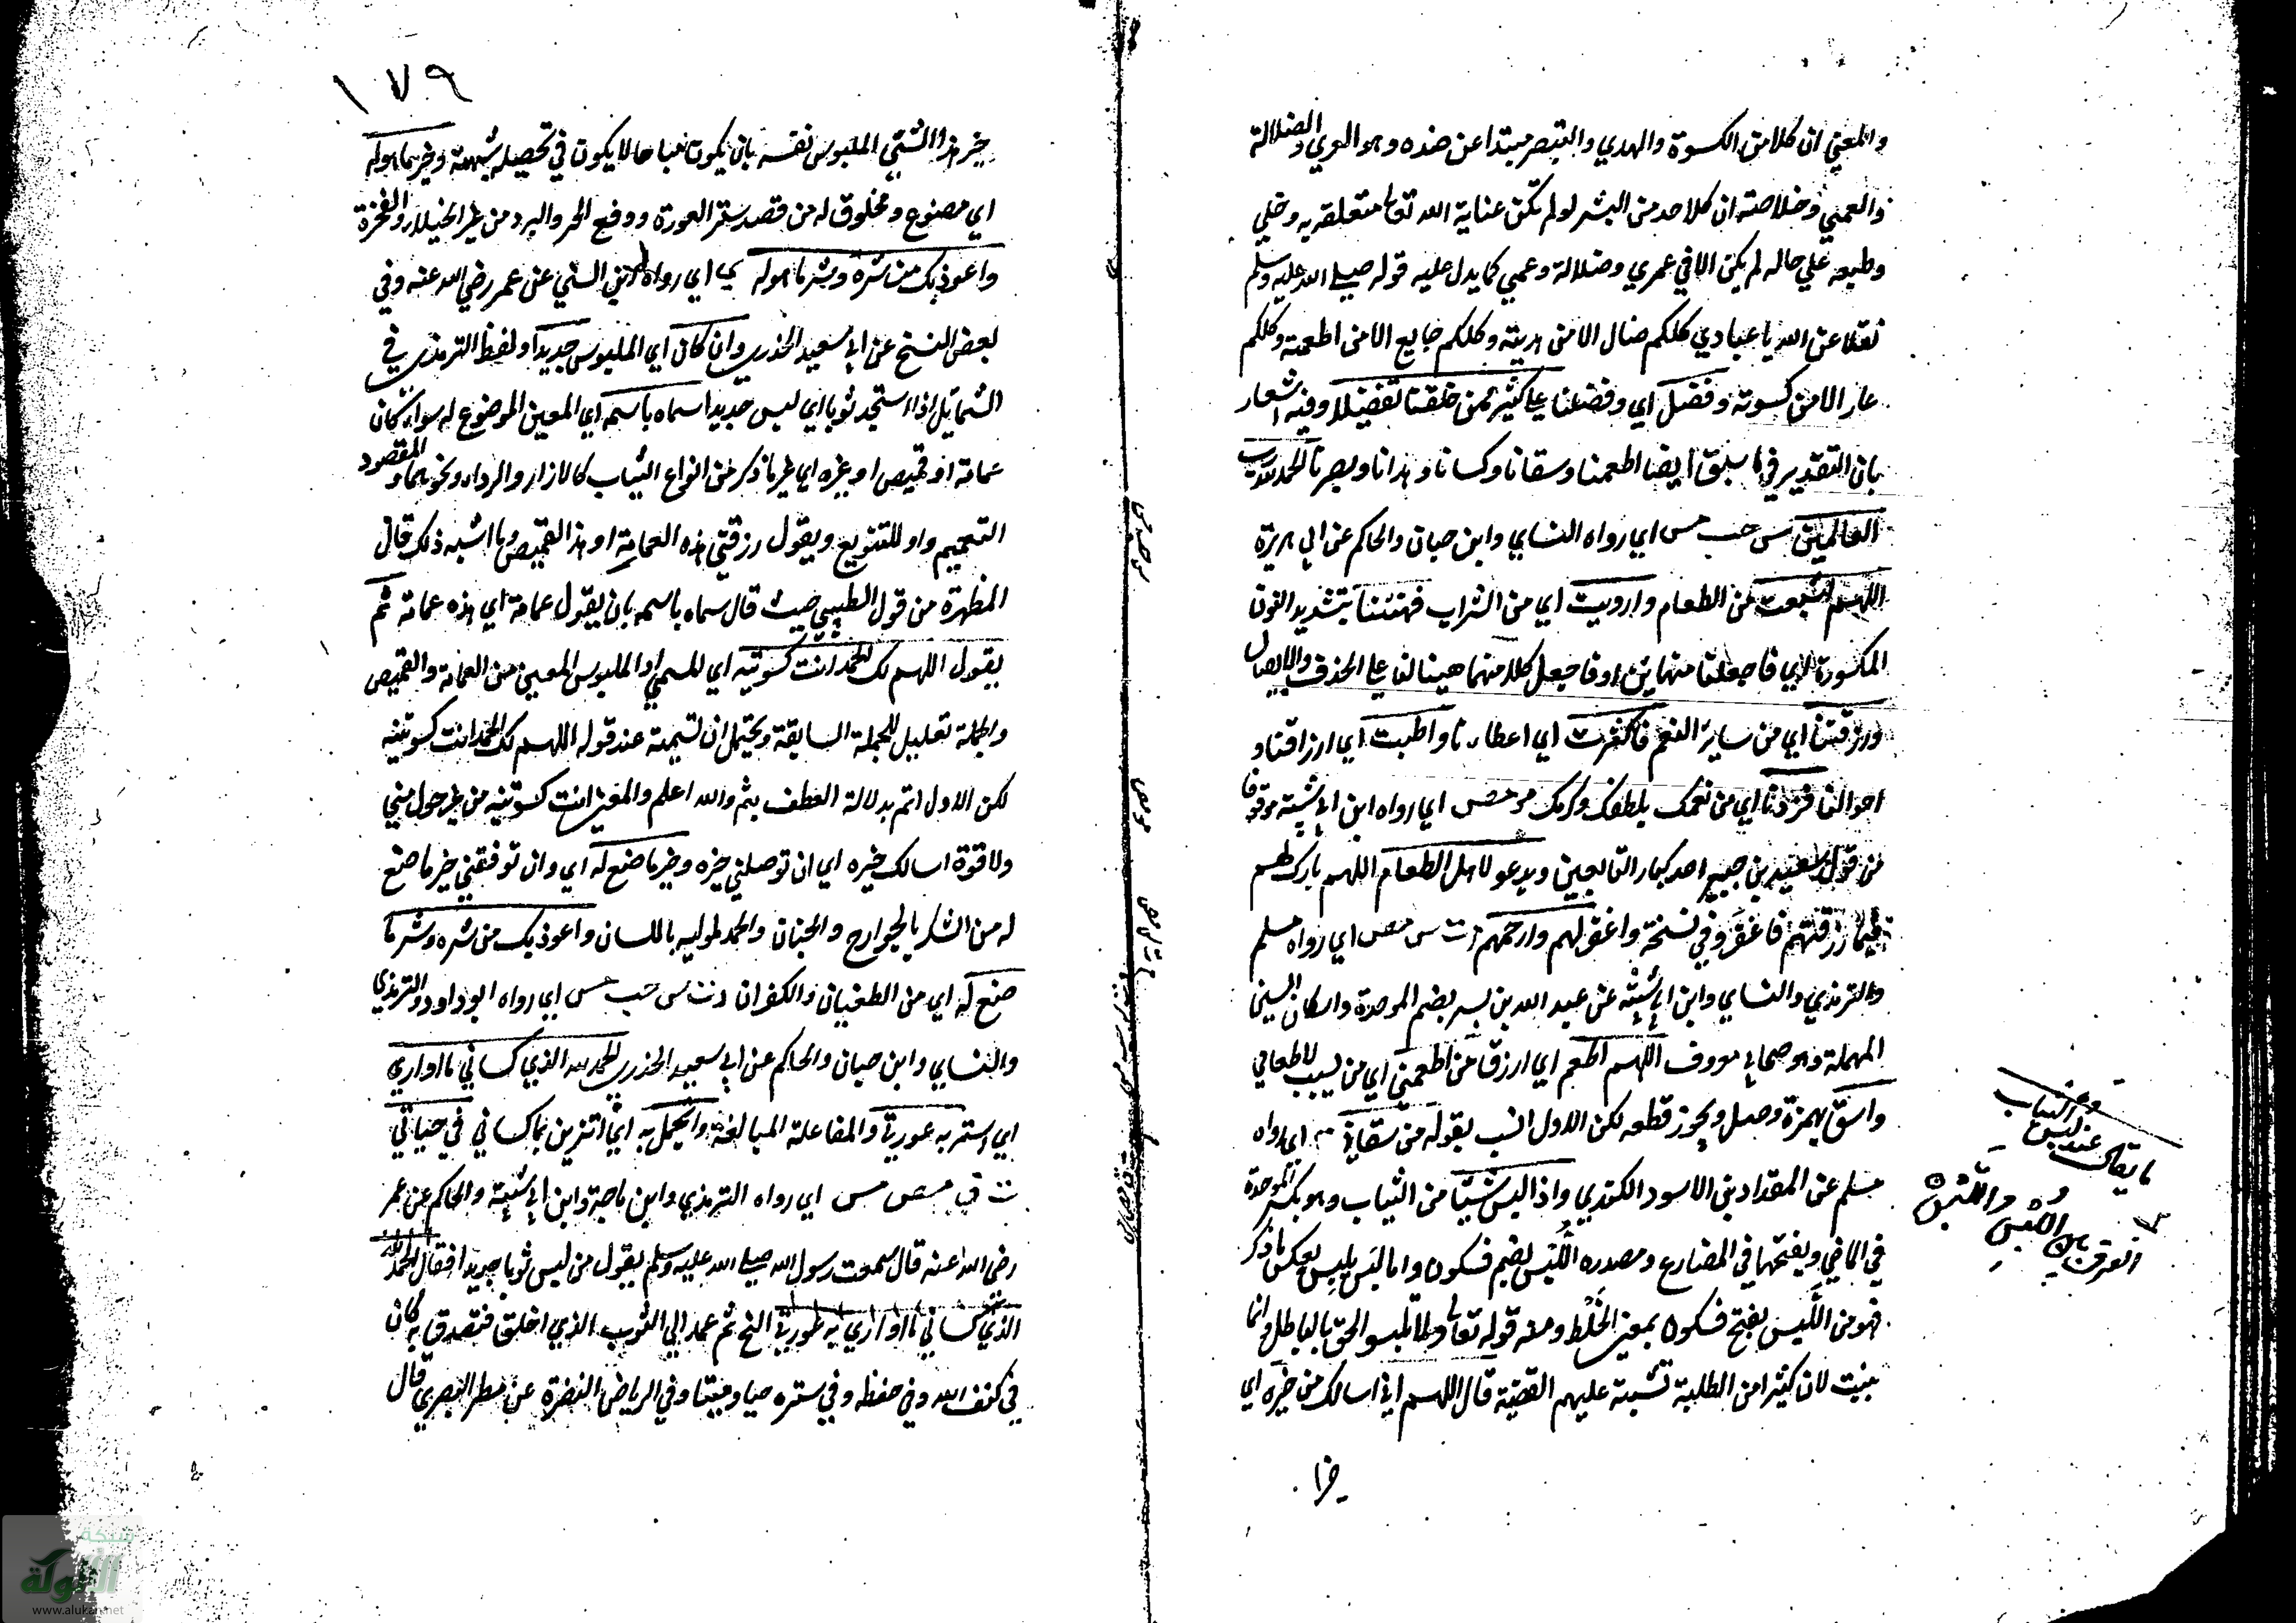 والمعني ان كلا من الكسوة والهدي والتبصر مبتدا عن ضده وهو العري والضلالة
والعمي وخلاصته ان كلا حد من البشر لو لم تكن عناية الله تعالى متعلقة به وخلي
وطبعه علي حاله لم يكن الا في عري وضلالة وعمي كما يدل عليه قوله صلي الله عليه وسلم
نقلا عن الله يا عبادي كلكم ضال الا من هديته وكلكم جايع الا من اطعمته وكلكم
عار الا من كسوته وفضل اي وفضلنا علي كثير ممن خلقنا تفضيلا وفيه اشعار
بان التقدير في ما سبق ايضا اطعمنا وسقانا وكسانا وهدانا وبصرنا الحمد لله رب
العالمين س حب مس اي رواه النساي وابن حبان والحاكم عن ابي هريرة
اللهم اشبعت من الطعام وارويت اي من الشراب فهنئنا بتشديد النون
المكسورة اي فاجعلنا متهانين او فاجعل كلا منهما هنيئا لنا علي الحذف والايصال
ورزقتنا اي من ساير النعم فاكثرت اي اعطاءنا واطبت اي ارزاقنا و
احوالنا فزدنا اي من نعمك بلطفك وكرمك مو مص اي رواه ابن ابي شيبة موقوفا
من قول سعيد بن جبير احد كبار التابعين ويدعو لاهل الطعام اللهم بارك لهم
فيما رزقتهم فاغفر وفي نسخة واغفر لهم وارحمهم م ت س مص اي رواه مسلم
والترمذي والنساي وابن ابي شيبة عن عبد الله بن بسر بضم الموحدة واسكان السين
المهملة وهو صحابي معروف اللهم اطعم اي ارزق من اطعمني اي من تسبب لاطعامي
واسق بهمزة وصل ويجوز قطعه لكن الاول انسب بقوله من سقاني م اي رواه
مسلم عن المقداد بن الاسود الكندي واذا لبس شيئا من الثياب وهو بكسر الموحدة
في الماضي وبفتحها في المضارع ومصدره اللبس بضم فسكون واما لبس يلبس بعكس ما ذكر
فهو من اللبس بفتح فسكون بمعني الخلط ومنه قوله تعالى ولا تلبسوا الحق بالباطل وانما
بينت لان كثيرا من الطلبة تشبه عليهم القضية قال اللهم اني اسالك من خيره اي
خيرا
ما يقال عند لبس
الفرق بين اللبس واللبس
١٧٩
خير هذا الشئي الملبوس نفسه بان يكون مباحا لا يكون في تحصيله شبهة وخير ما هو له
اي مصنوع ومخلوق له من قصد ستر العورة ودفع الحر والبرد من غير الخيلاء والفخرة
واعوذ بك من شره وشر ما هو له ي اي رواه ابن السني عن عمر رضي الله عنه وفي
بعض النسخ عن ابي سعيد الخدري وان كان اي الملبوس جديدا ولفظ الترمذي في
الشمايل اذا استجد ثوبا اي لبس جديدا سماه باسمه اي المعين الموضوع له سواء كان
عمامة او قميصا او غيره اي غير ما ذكر من انواع الثياب كالازار والرداء ونحوهما والمقصود
التعميم واو للتنويع ويقول رزقني هذه العمامة او هذا القميص وما اشبه ذلك قال
المظهرة من قول الطيبي حيث قال سماه باسمه بان يقول عمامة اي هذه عمامة ثم
يقول اللهم لك الحمد انت كسوتنيه اي للمسمي او الملبوس المعين من العمامة والقميص
والجملة تعليل للجملة السابقة ويحتمل ان تسميته عند قوله اللهم لك الحمد انت كسوتنيه
لكن الاول اتم بدلالة العطف بثم والله اعلم والمعني انت كسوتنيه من غير حول مني
ولا قوة اسالك خيره اي ان توصلني خيره وخير ما صنع له اي وان توفقني خير ما صنع
له من الشكر بالجوارح والجنان والحمد لموليه باللسان واعوذ بك من شره وشر ما
صنع له اي من الطغيان والكفران د ت س حب مس اي رواه ابو داود والترمذي
والنساي وابن حبان والحاكم عن ابي سعيد الخدري الحمد لله الذي كساني ما اواري
اي استر به عورتي والمفاعلة المبالغة واتجمل به اي اتزين بما كساني في حياتي
ت ق مص مس اي رواه الترمذي وابن ماجة وابن ابي شيبة والحاكم عن عمر
رضي الله عنه قال سمعت رسول الله صلي الله عليه وسلم يقول من لبس ثوبا جديدا فقال الحمد لله
الذي كساني ما اواري به عورتي الخ ثم عمد الي الثوب الذي اخلق فتصدق به كان
في كنف الله وفي حفظه وفي ستره حيا وميتا وفي الرياض النضرة عن مطر البصري قال
شبكة
الألوكة
www.alukah.net